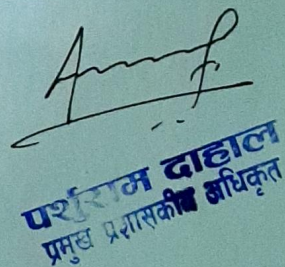 पर्शुराम दाहाल
प्रमुख प्रशासकीय अधिकृत